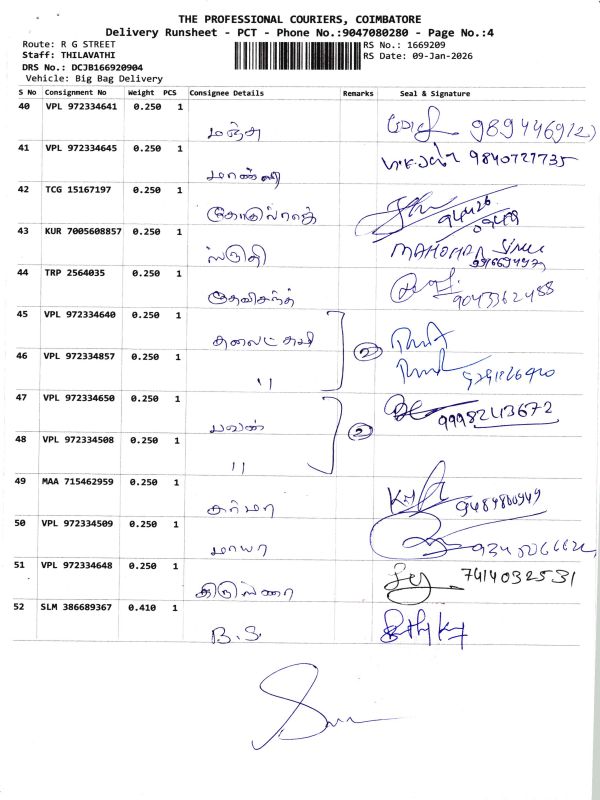 THE PROFESSIONAL COURIERS, COIMBATORE
Delivery Runsheet - PCT - Phone No.:9047080280 - Page No.:4
Route: R G STREET
RS No.: 1669209
Staff: THILAVATHI
RS Date: 09-Jan-2026
DRS No.: DCJB166920904
Vehicle: Big Bag Delivery
S No Consignment No Weight PCS Consignee Details Remarks Seal & Signature
40 VPL 972334641 0.250 1
மஞ்சு
41 VPL 972334645 0.250 1
9840721735
42 TCG 15167197 0.250 1
கோகுல்ராஜ்
43 KUR 7005608857 0.250 1
ஸ்ருதி
44 TRP 2564035 0.250 1
9043362488
45 VPL 972334640 0.250 1
46 VPL 972334857 0.250 1
2
"
47 VPL 972334650 0.250 1
9998243672
பவன்
2
48 VPL 972334508 0.250 1
"
49 MAA 715462959 0.250 1
சர்மா
50 VPL 972334509 0.250 1
மாயா
51 VPL 972334648 0.250 1
7414032531
52 SLM 386689367 0.410 1
B.S.